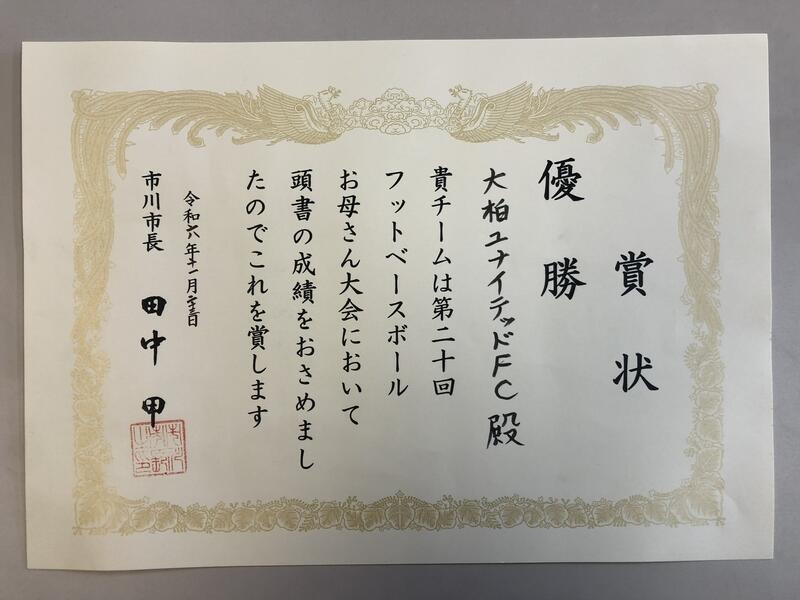 賞状
優勝
大柏ユナイテッドFC殿
貴チームは第二十回
フットベースボール
お母さん大会において
頭書の成績をおさめまし
たのでこれを賞します
令和六年十一月二十三日
市川市長 田中甲